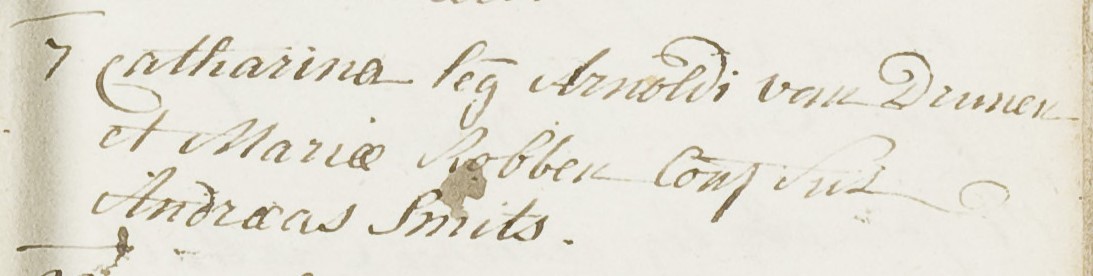 7 Catharina leg Arnoldi van Drunen
et Mariæ Robben Conj Sus
Andræas Smits.